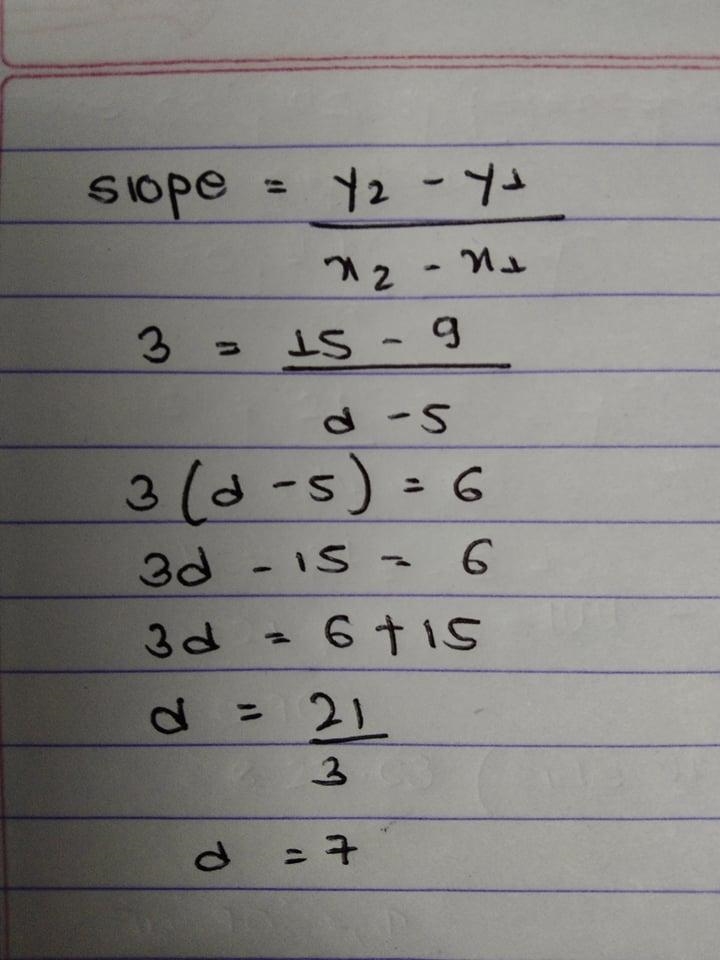 slope = y2 - y1
x2 - x1
3 = 15 - 9
d - 5
3 (d - 5) = 6
3d - 15 = 6
3d = 6 + 15
d = 21
3
d = 7